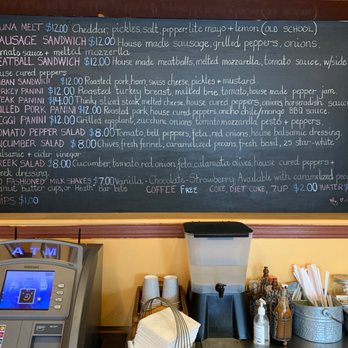 TUNA MELT $12.00 Cheddar, pickles, salt, pepper, lite mayo + lemon (OLD SCHOOL)
SAUSAGE SANDWICH $12.00 House made sausage, grilled peppers, onions,
tomato sauce + melted mozzarella
MEATBALL SANDWICH $12.00 House made meatballs, melted mozzarella, tomato sauce, w/side
house cured peppers
CUBAN SANDWICH $12.00 Roasted pork, ham, swiss cheese, pickles + mustard
TURKEY PANINI $12.00 Roasted turkey breast, mild brie, tomato, house made pepper jam
STEAK PANINI $14.00 Thinly sliced steak, melted cheese, house cured peppers, onions, horseradish sauce
PULLED PORK PANINI $12.00 Roasted pork, house cured peppers, ancho chile/mango BBQ sauce
EGGPL PANINI $12.00 Grilled eggplant, zucchine, onions, tomato, mozzarella, pesto + peppers
TOMATO PEPPER SALAD $8.00 Tomato, bell peppers, feta, red onions, house balsamic dressing
CUCUMBER SALAD $8.00 Chives, fresh fennel, caramelized pecans, fresh basil, 25 star-white
balsamic + cider vinegar
GREEK SALAD $8.00 Cucumber, tomato, red onion, feta, calamata olives, house cured peppers +
greek dressing
OLD FASHIONED MILK SHAKES $7.00 Vanilla - Chocolate - Strawberry Available with caramelized
peanut butter cups, or Heath Bar bits
COFFEE FREE COKE, DIET COKE, 7UP $2.00 WATER
CHIPS $1.00
ATM